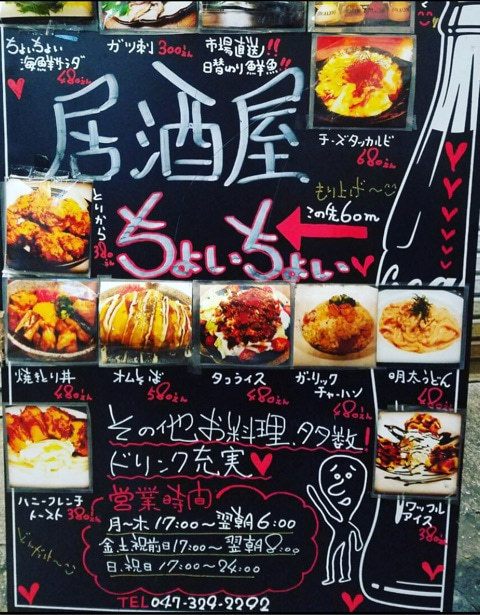 ちょいちょい
海鮮サラダ
480えん
ガツ刺 300えん
市場直送!!
日替わり鮮魚!!
居酒屋
チーズタッカルビ
680えん
もり上がろ〜
この先60m
とりから
380えん
ちょいちょい
焼とり丼
480えん
オムそば
580えん
タコライス
480えん
ガーリック
チャーハン
480えん
明太うどん
480えん
その他お料理.多数!
ドリンク充実
ハニーフレンチ
トースト 380えん
営業時間
月〜木 17:00〜翌朝6:00
金土祝前日17:00〜翌朝8:00
日.祝日 17:00〜24:00
ワッフル
アイス
380えん
TEL 047-329-2292